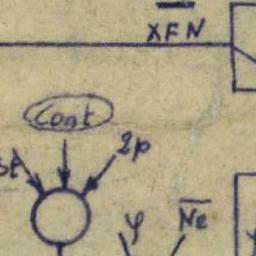 XFN
Cont
2p
φ N̅e̅